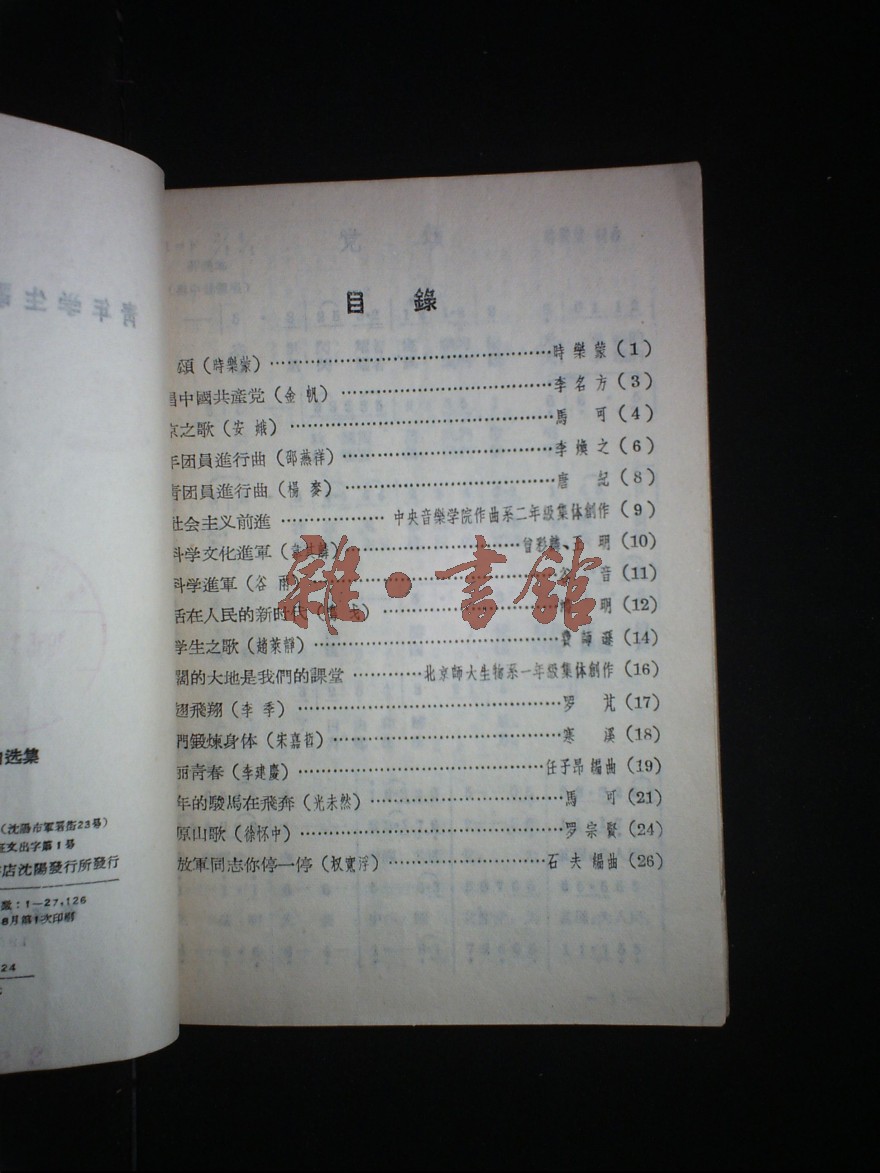 目錄
頌（時樂蒙）……時樂蒙（1）
唱中國共產党（金帆）……李名方（3）
京之歌（安娥）……馬可（4）
年团員進行曲（邵燕祥）……李煥之（6）
青团員進行曲（楊麥）……唐紀（8）
社会主义前進……中央音樂学院作曲系二年級集体創作（9）
科学文化進軍……明（10）
科学進軍（谷雨）……谷音（11）
活在人民的新时代……明（12）
学生之歌（趙萊靜）……費師遜（14）
闊的大地是我們的課堂……北京師大生物系一年級集体創作（16）
翅飛翔（李季）……罗芃（17）
們鍛煉身体（朱嘉哲）……寒溪（18）
丽青春（李建慶）……任子昂編曲（19）
年的駿馬在飛奔（光未然）……馬可（21）
原山歌（徐怀中）……罗宗賢（24）
放軍同志你停一停（权寬浮）……石夫編曲（26）
雜·書館
青年学生
选集
（沈陽市軍署街23号）
文出字第1号
店沈陽發行所發行
数：1—27,126
8月第1次印刷
24
党